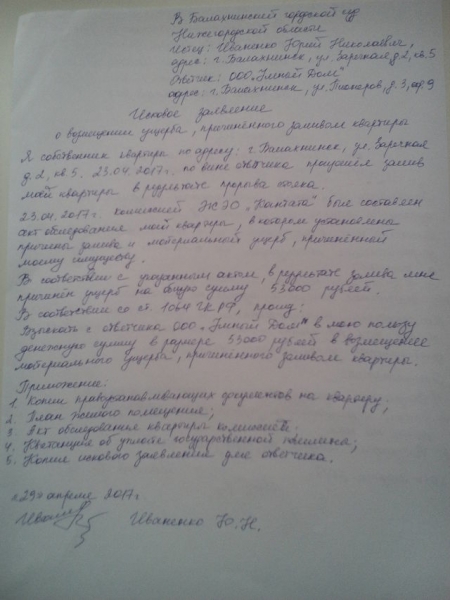 В Балахнинский городской суд
Нижегородской области
Истец: Иваненко Юрий Николаевич,
адрес: г. Балахнинск, ул. Заречная д.2, кв.5
Ответчик: ООО "Умный Дом"
адрес: г. Балахнинск, ул. Пионеров, д.3, оф.9
Исковое заявление
о возмещении ущерба, причинённого заливом квартиры
Я собственник квартиры по адресу: г. Балахнинск, ул. Заречная
д.2, кв 5. 23.04.2017г. по вине ответчика произошел залив
моей квартиры в результате прорыва
23.04.2017г. комиссией "Кантата" был составлен
акт обследования моей квартиры, в котором установлены
причины залива и материальный ущерб, причинённый
моему имуществу.
В соответствии с указанным актом, в результате залива мне
причинён ущерб на общую сумму 53000 рублей.
В соответствии со ст. 1064 ГК РФ, прошу:
Взыскать с ответчика ООО "Умный Дом" в мою пользу
денежную сумму в размере 53000 рублей в возмещение
материального ущерба, причинённого заливом квартиры.
Приложение:
1. Копии правоустанавливающих документов на квартиру;
2. План жилого помещения;
3. Акт обследования квартиры комиссией.
4. Квитанция об уплате государственной пошлины;
5. Копия искового заявления для ответчика.
«29» апреля 2017г.
Иваненко Ю.Н.